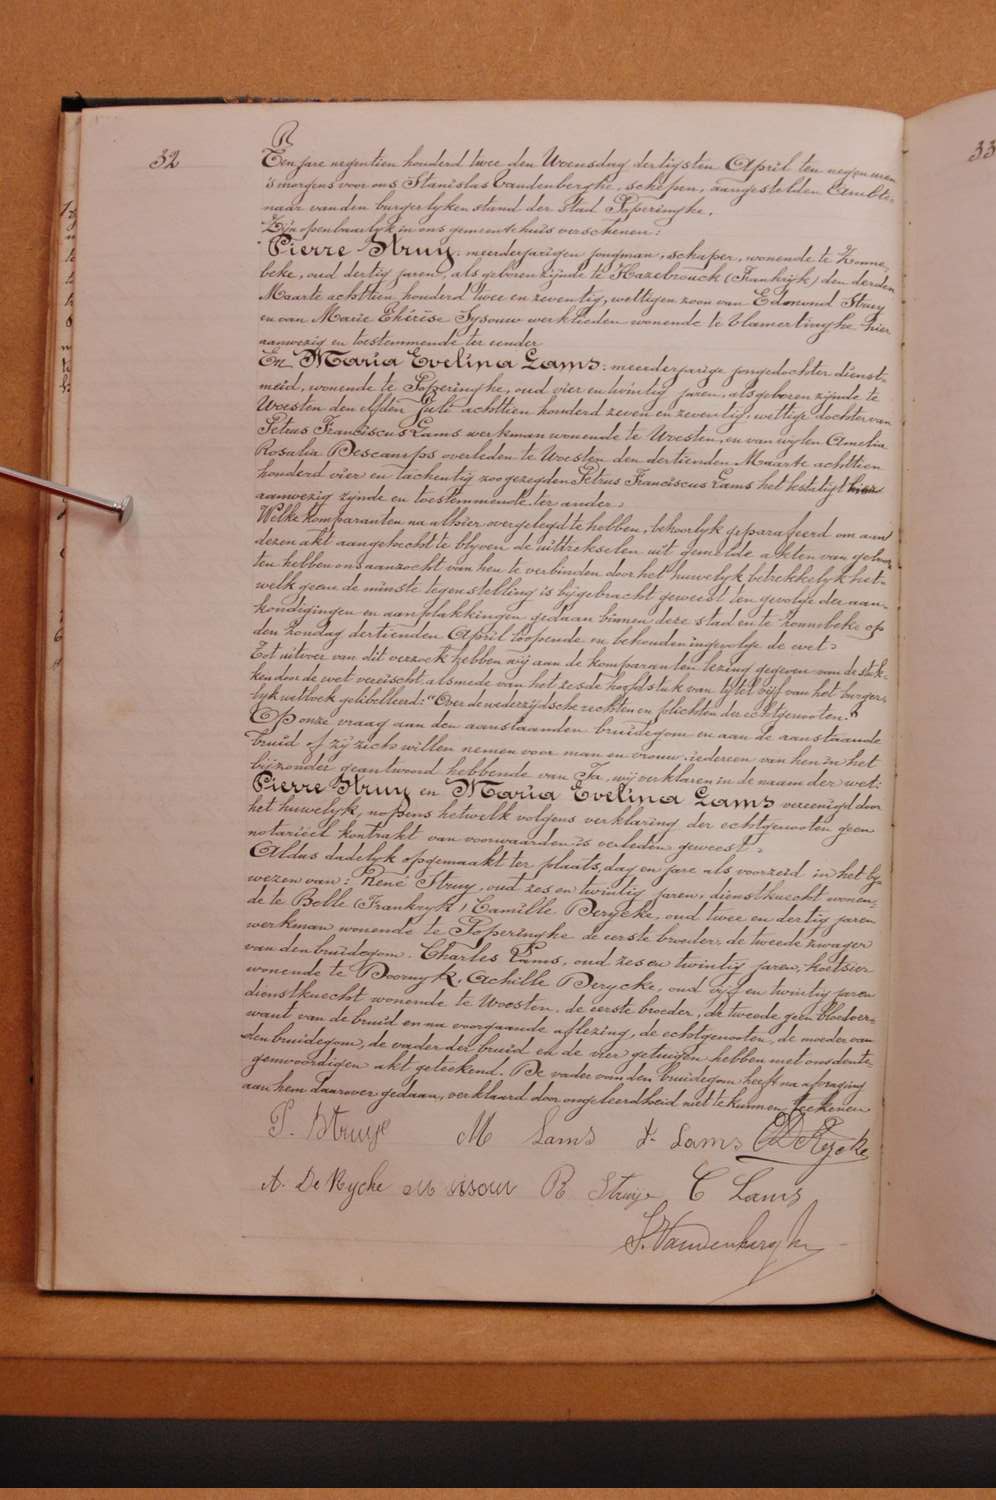 32
33
Ten jare negentien honderd twee den Woensdag dertigsten April ten negen uren
's morgens voor ons Stanislas Vandenberghe, schepen, aangestelden Ambte-
naar van den burgerlyken stand der stad Poperinghe.
Zijn openbaarlyk in ons gemeentehuis verschenen:
Pierre Struy: meerderjarigen jongman, schaper, wonende te Zonne-
beke, oud dertig jaren, als geboren zijnde te Hazebrouck (Frankrijk) den derden
Maarte achttien honderd twee en zeventig, wettigen zoon van Edmond Struy
en van Marie Thérèse Sysouw werklieden wonende te Vlamertinghe hier
aanwezig en toestemmende ter eender
En Maria Evelina Lams: meerderjarige jongedochter dienst-
meid, wonende te Poperinghe, oud vier en twintig jaren, als geboren zijnde te
Woesten den elfden Juli achttien honderd zeven en zeventig, wettige dochter van
Petrus Franciscus Lams werkman wonende te Woesten, en van wylen Amelia
Rosalia Descamps overleden te Woesten den dertienden Maarte achttien
honderd vier en tachentig zoo gezegden Petrus Franciscus Lams het bestatigt hier
aanwezig zijnde en toestemmende ter ander.
Welke komparanten na alhier overgelegd te hebben, behoorlyk geparafeerd om aan
dezen akt aangehecht te blyven de uittrekselen uit gemelde akten van geboor-
ten hebben ons aanzocht van hen te verbinden door het huwelyk betrekkelyk het-
welk geene de minste tegenstelling is bijgebracht geweest ten gevolge der aan-
kondigingen en aanplakkingen gedaan binnen deze stad en te Zonnebeke op
den Zondag dertienden April loopende en behouden ingevolge de wet.
Tot uitvoer van dit verzoek hebben wij aan de komparanten lezing gegeven van de stuk-
ken door de wet vereischt alsmede van het zesde hoofdstuk van tytel vijf van het burger-
lyk wetboek gelibelleerd: "Over de wederzijdsche rechten en plichten der echtgenooten."
Op onze vraag aan den aanstaanden bruidegom en aan de aanstaande
bruid of zij zich willen nemen voor man en vrouw: iedereen van hen in het
bijzonder geantwoord hebbende van Ja, wij verklaren in de naam der wet:
Pierre Struy en Maria Evelina Lams vereenigd door
het huwelyk, nopens hetwelk volgens verklaring der echtgenooten geen
notariëel kontrakt van voorwaarden is verleden geweest.
Aldus dadelyk opgemaakt ter plaats, dag en jare als voorzeid in het by-
wezen van: René Struy, oud zes en twintig jaren, dienstknecht wonen-
de te Belle (Frankryk) Camille Derycke, oud twee en dertig jaren
werkman wonende te Poperinghe de eerste broeder, de tweede zwager
van den bruidegom. Charles Lams, oud zes en twintig jaren, koetsier
wonende te Doornyk, Achille Derycke, oud vijf en twintig jaren
dienstknecht wonende te Woesten, de eerste broeder, de tweede geen bloedver-
want van de bruid en na voorgaande aflezing, de echtgenooten, de moeder van
den bruidegom, de vader der bruid en de vier getuigen hebben met ons dente-
genwoordigen akt geteekend. De vader van den bruidegom heeft na afvraging
aan hem daarover gedaan, verklaard door ongeleerdheid niet te kunnen teekenen
P. Struye M Lams P. Lams C DeRycke
A. De Rycke R Struye C Lams
S. Vandenberghe